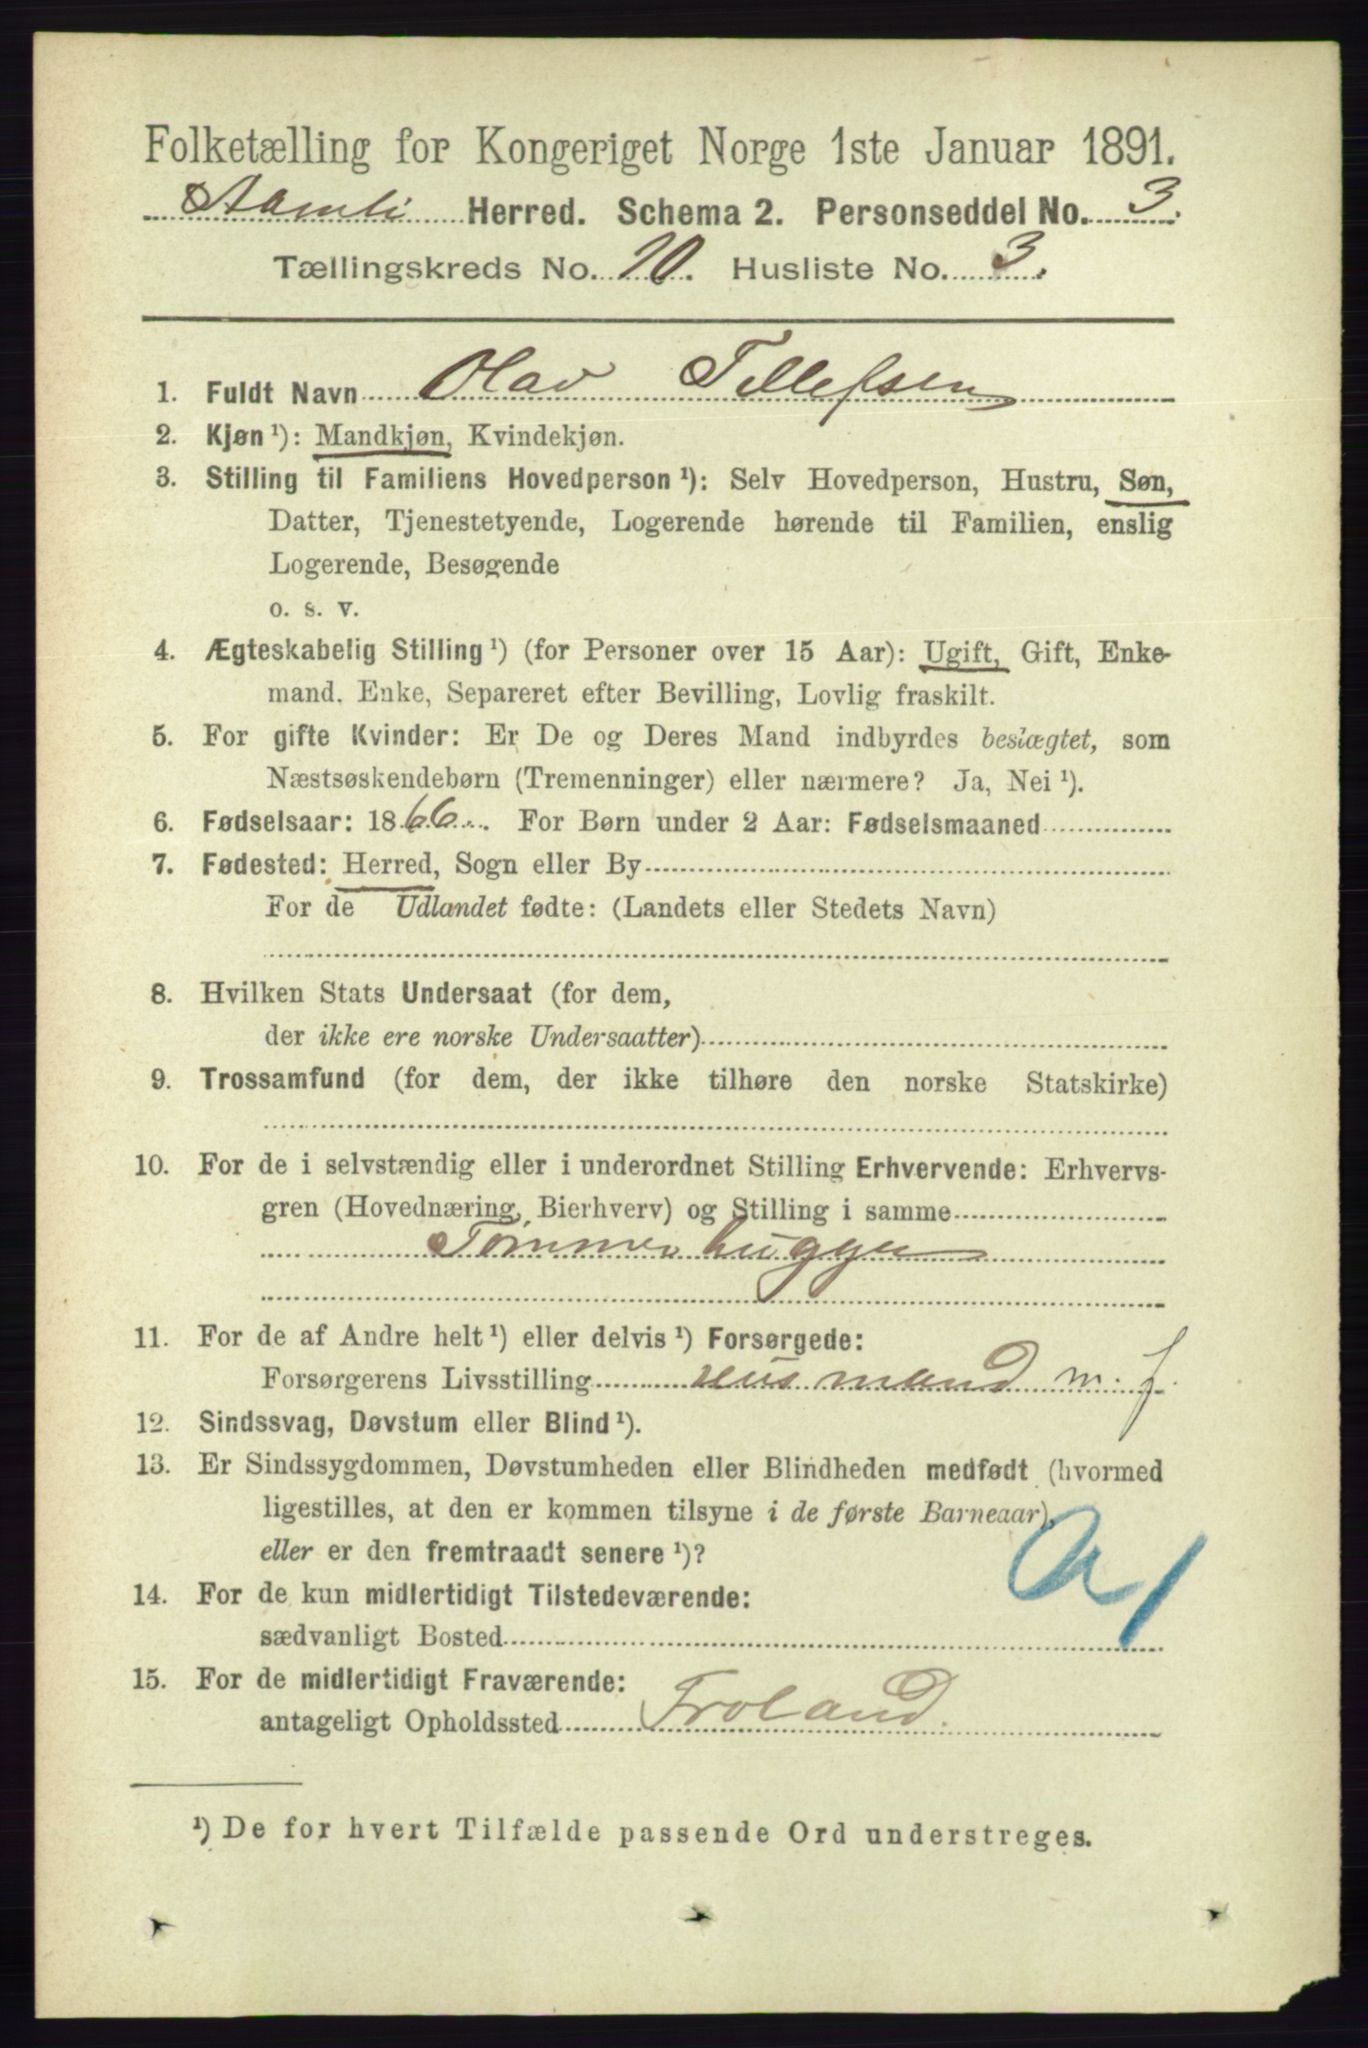 Folketælling for Kongeriget Norge 1ste Januar 1891.
Aamli Herred. Schema 2. Personseddel No. 3.
Tællingskreds No. 10. Husliste No. 3.
1. Fuldt Navn Olav Tellefsen
2. Kjøn ¹): Mandkjøn, Kvindekjøn.
3. Stilling til Familiens Hovedperson ¹): Selv Hovedperson, Hustru, Søn,
Datter, Tjenestetyende, Logerende hørende til Familien, enslig
Logerende, Besøgende
o. s. v.
4. Ægteskabelig Stilling ¹) (for Personer over 15 Aar): Ugift, Gift, Enke-
mand, Enke, Separeret efter Bevilling, Lovlig fraskilt.
5. For gifte Kvinder: Er De og Deres Mand indbyrdes beslægtet, som
Næstsøskendebørn (Tremenninger) eller nærmere? Ja, Nei ¹).
6. Fødselsaar: 1866. For Børn under 2 Aar: Fødselsmaaned
7. Fødested: Herred, Sogn eller By
For de Udlandet fødte: (Landets eller Stedets Navn)
8. Hvilken Stats Undersaat (for dem,
der ikke ere norske Undersaatter)
9. Trossamfund (for dem, der ikke tilhøre den norske Statskirke)
10. For de i selvstændig eller i underordnet Stilling Erhvervende: Erhvervs-
gren (Hovednæring, Bierhverv) og Stilling i samme
Tømmerhugger
11. For de af Andre helt ¹) eller delvis ¹) Forsørgede:
Forsørgerens Livsstilling Husmand m. j.
12. Sindssvag, Døvstum eller Blind ¹).
13. Er Sindssygdommen, Døvstumheden eller Blindheden medfødt (hvormed
ligestilles, at den er kommen tilsyne i de første Barneaar),
eller er den fremtraadt senere ¹)?
14. For de kun midlertidigt Tilstedeværende:
sædvanligt Bosted
15. For de midlertidigt Fraværende:
antageligt Opholdssted Froland.
¹) De for hvert Tilfælde passende Ord understreges.